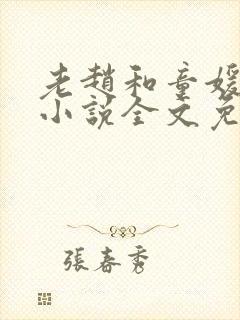 老趙和童媛
小說全文免
張春秀